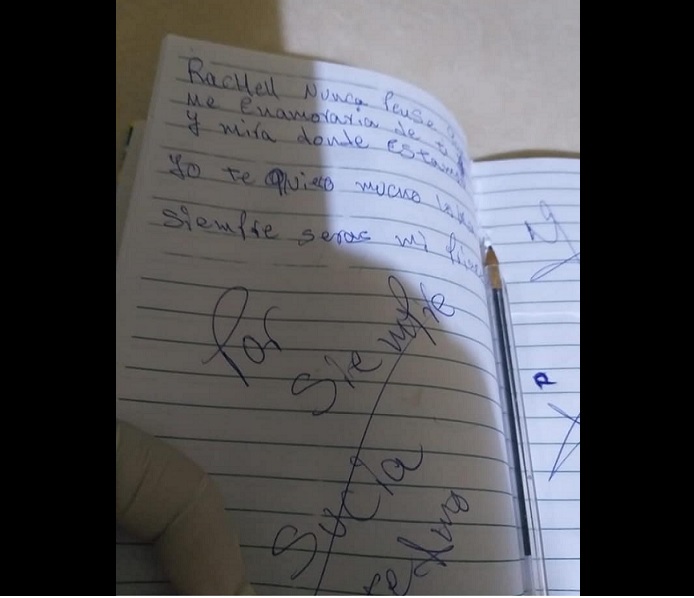 Rachell Nunca Pense
Me Enamoraria De ti
y mira donde Estamos
Yo te Quiero mucho
Siempre seras mi
Por
Siempre
Sucia
te Amo